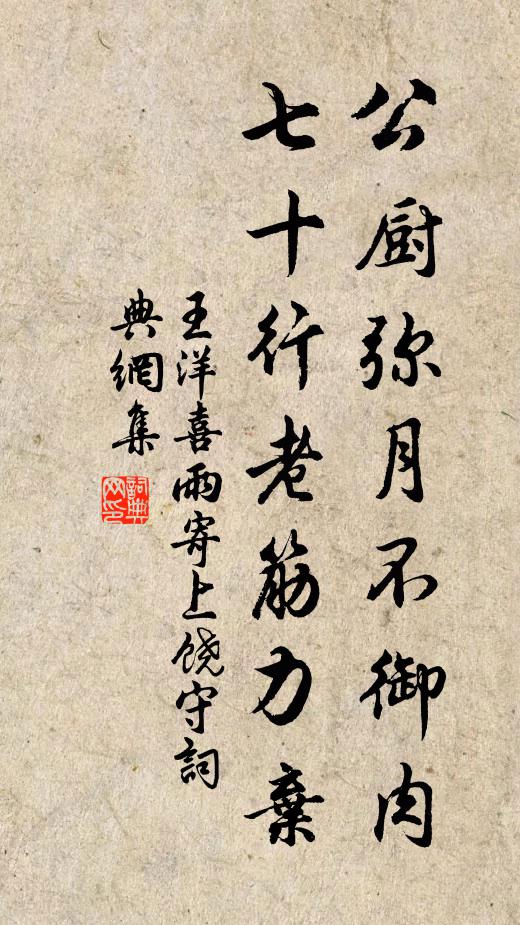 公厨弥月不御肉
七十行老筋力棄
王洋喜雨寄上饒守詞
典網集
詞典
网印